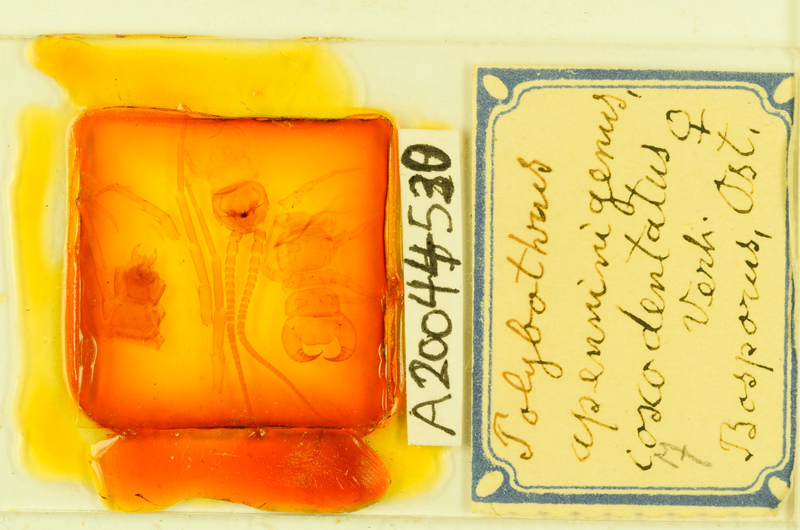 A20044530
Polybothrus
apenninigenus,
coxodentatus ♀
Verh.
Bosporus, Ost.